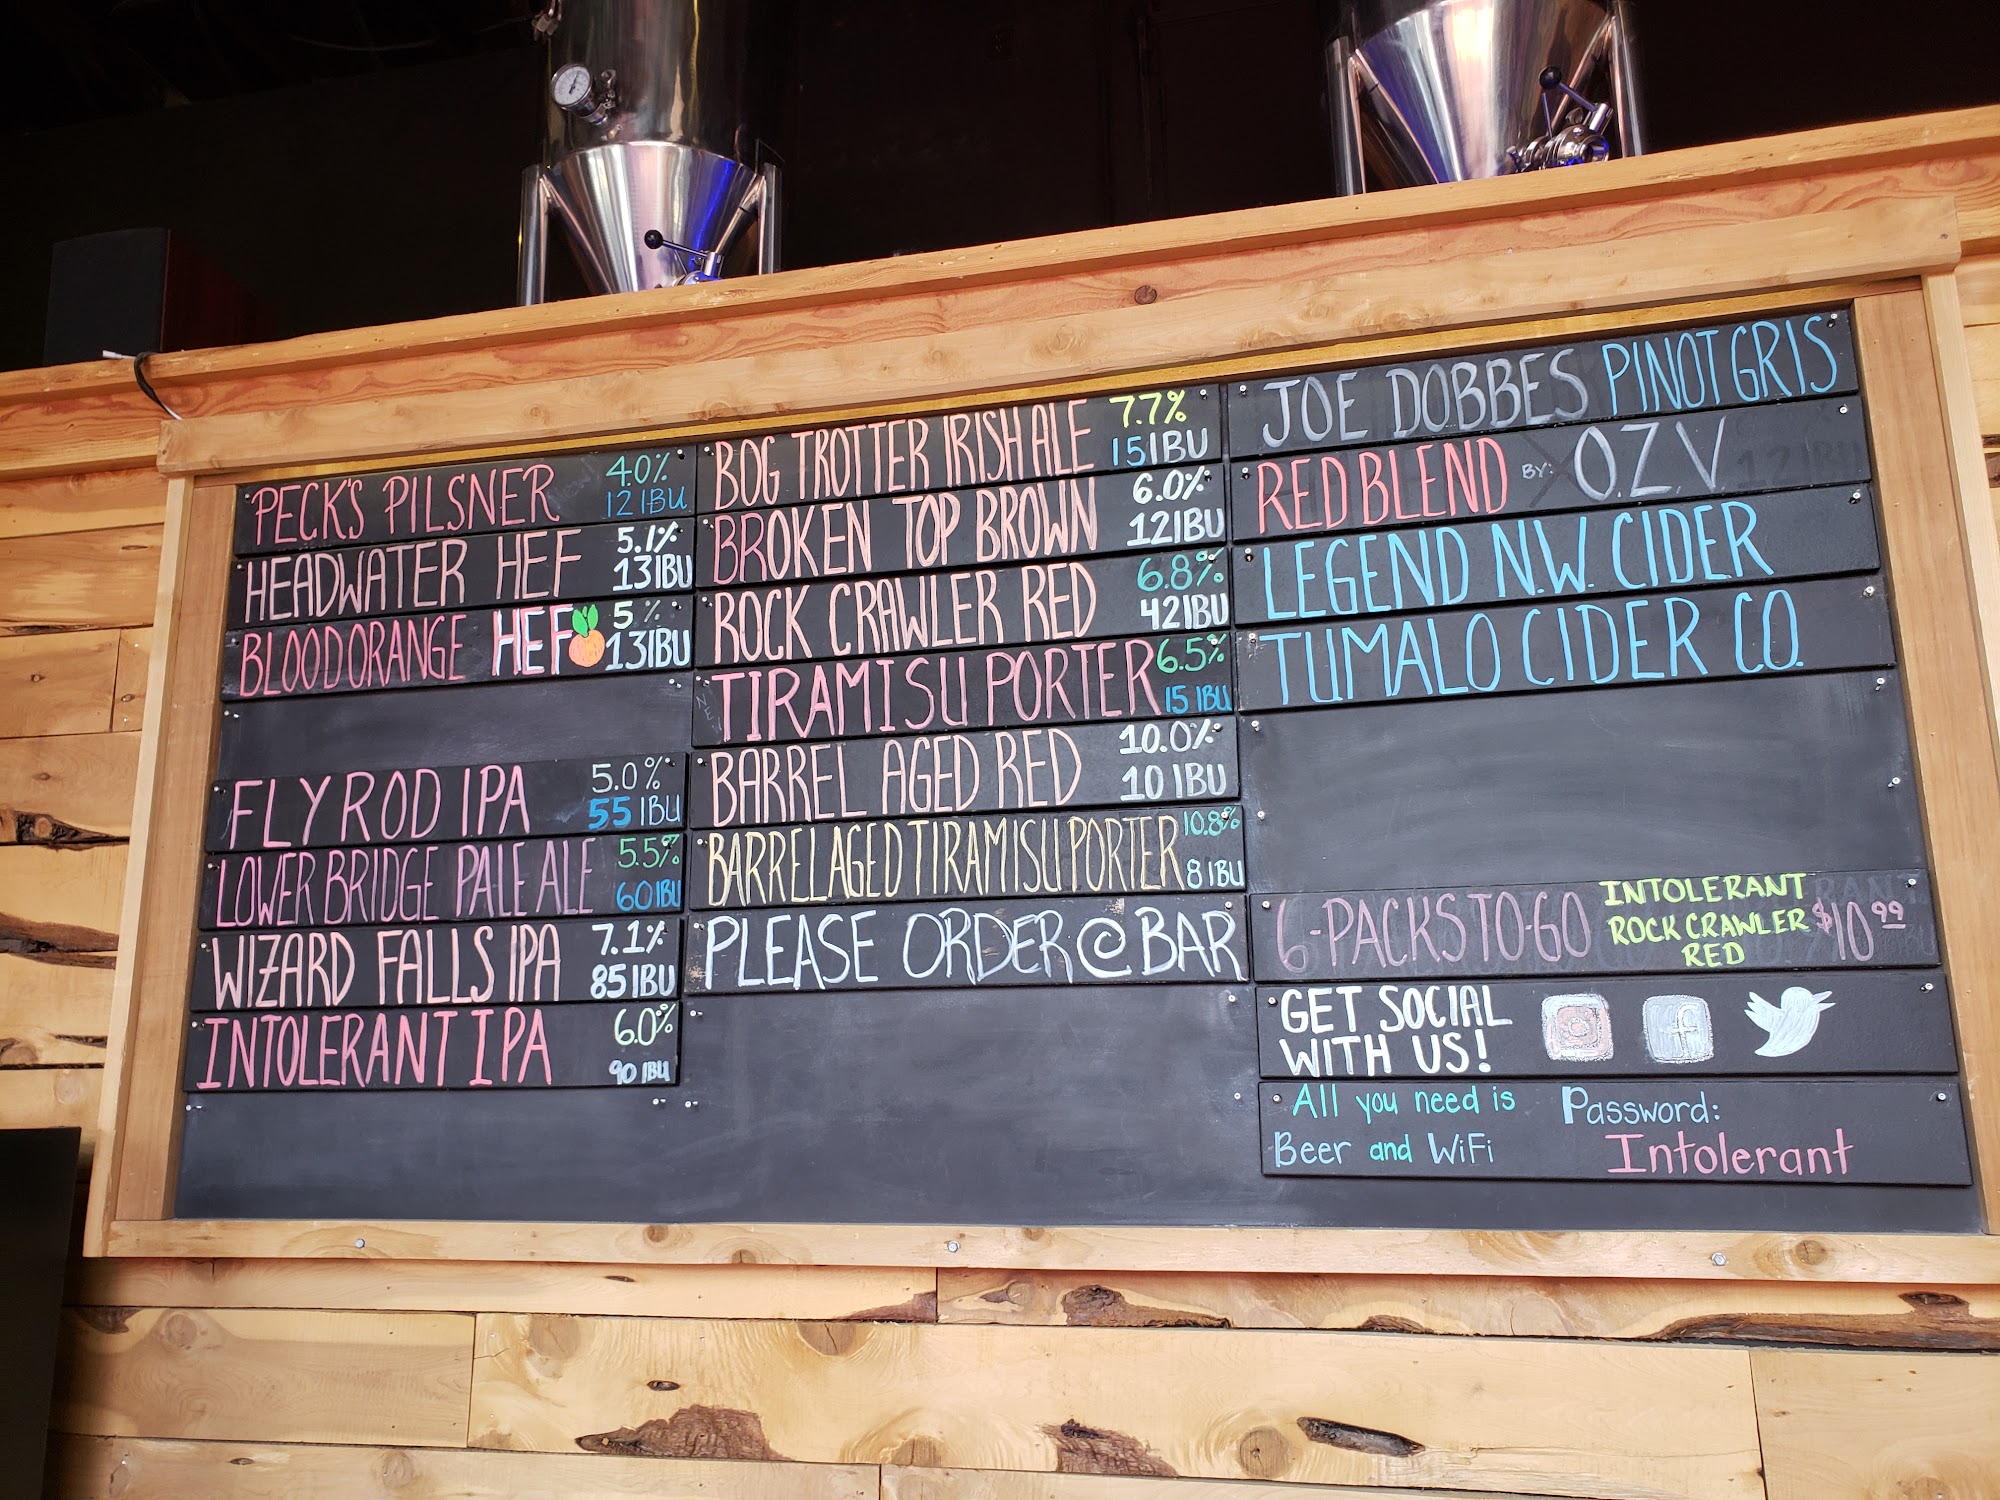 PECK'S PILSNER 4.0%
12 IBU
HEADWATER HEF 5.1%
13 IBU
BLOOD ORANGE HEF 5%
13 IBU
FLY ROD IPA 5.0%
55 IBU
LOWER BRIDGE PALE ALE 5.5%
60 IBU
WIZARD FALLS IPA 7.1%
85 IBU
INTOLERANT IPA 6.0%
90 IBU
BOG TROTTER IRISH ALE 7.7%
15 IBU
BROKEN TOP BROWN 6.0%
12 IBU
ROCK CRAWLER RED 6.8%
42 IBU
TIRAMISU PORTER 6.5%
15 IBU
BARREL AGED RED 10.0%
10 IBU
BARREL AGED TIRAMISU PORTER 10.8%
8 IBU
PLEASE ORDER @ BAR
JOE DOBBES PINOT GRIS
RED BLEND BY: O.Z.V.
LEGEND N.W. CIDER
TUMALO CIDER CO.
6-PACKS TO-GO INTOLERANT
ROCK CRAWLER
RED
$10.99
GET SOCIAL
WITH US! f
All you need is
Beer and WiFi
Password:
Intolerant